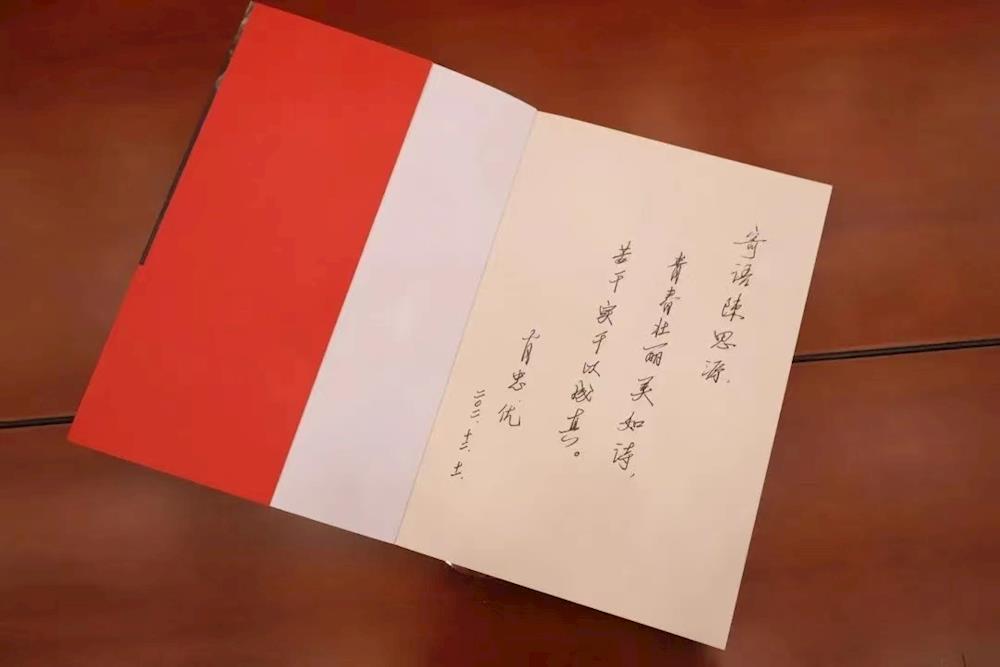 寄语陈思源，
青春壮丽美如诗，
苦干实干以成真。
肖忠优
二〇二一.十二.十一.